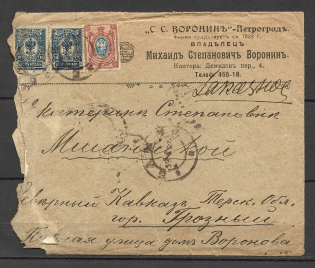 „С. С. ВОРОНИНЪ“-Петроградъ.
Фирма существуетъ съ 18
ВЛАДѢЛЕЦЪ
Михаилъ Степановичъ Воронинъ.
Контора: Демидовъ пер., 4.
Телеф. 455-18.
Заказное
Екатеринѣ Степановнѣ
Кавказъ Терск. Обл.
гор. Грозный
улица домъ Воронова